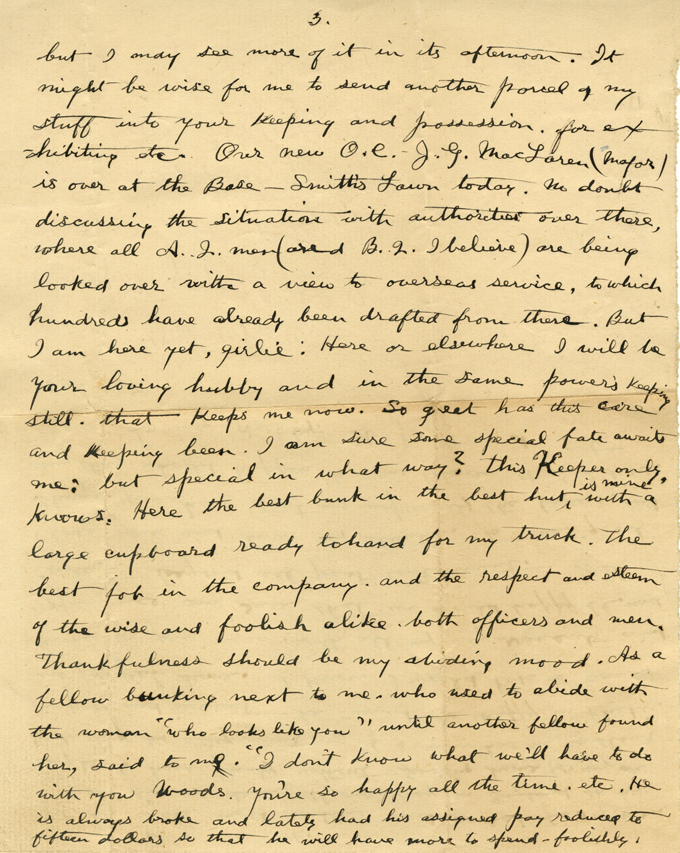 3.
but I may see more of it in its afternoon. It
might be wise for me to send another parcel of my
stuff into your keeping and possession. for ex
=hibiting etc. Our new O.C. - J.G. MacLaren (Major)
is over at the Base - Smith's Lawn today. No doubt
discussing the situation with authorities over there,
where all A.I. men (and B.I. I believe) are being
looked over with a view to overseas service, to which
hundreds have already been drafted from there. But
I am here yet, girlie: Here or elsewhere I will be
your loving hubby and in the same power's keeping
still. that keeps me now. So great has this care
and keeping been. I am sure some special fate awaits
me: but special in what way? this Keeper only,
knows. Here the best bunk in the best hut, is mine, with a
large cupboard ready to hand for my truck. The
best job in the company. and the respect and esteem
of the wise and foolish alike. both officers and men.
Thankfulness should be my abiding mood. As a
fellow bunking next to me. who used to abide with
the woman "who looks like you" until another fellow found
her, said to me. "I don't know what we'll have to do
with you Woods. You're so happy all the time. etc. He
is always broke and lately had his assigned pay reduced to
fifteen dollars so that he will have more to spend - foolishly.